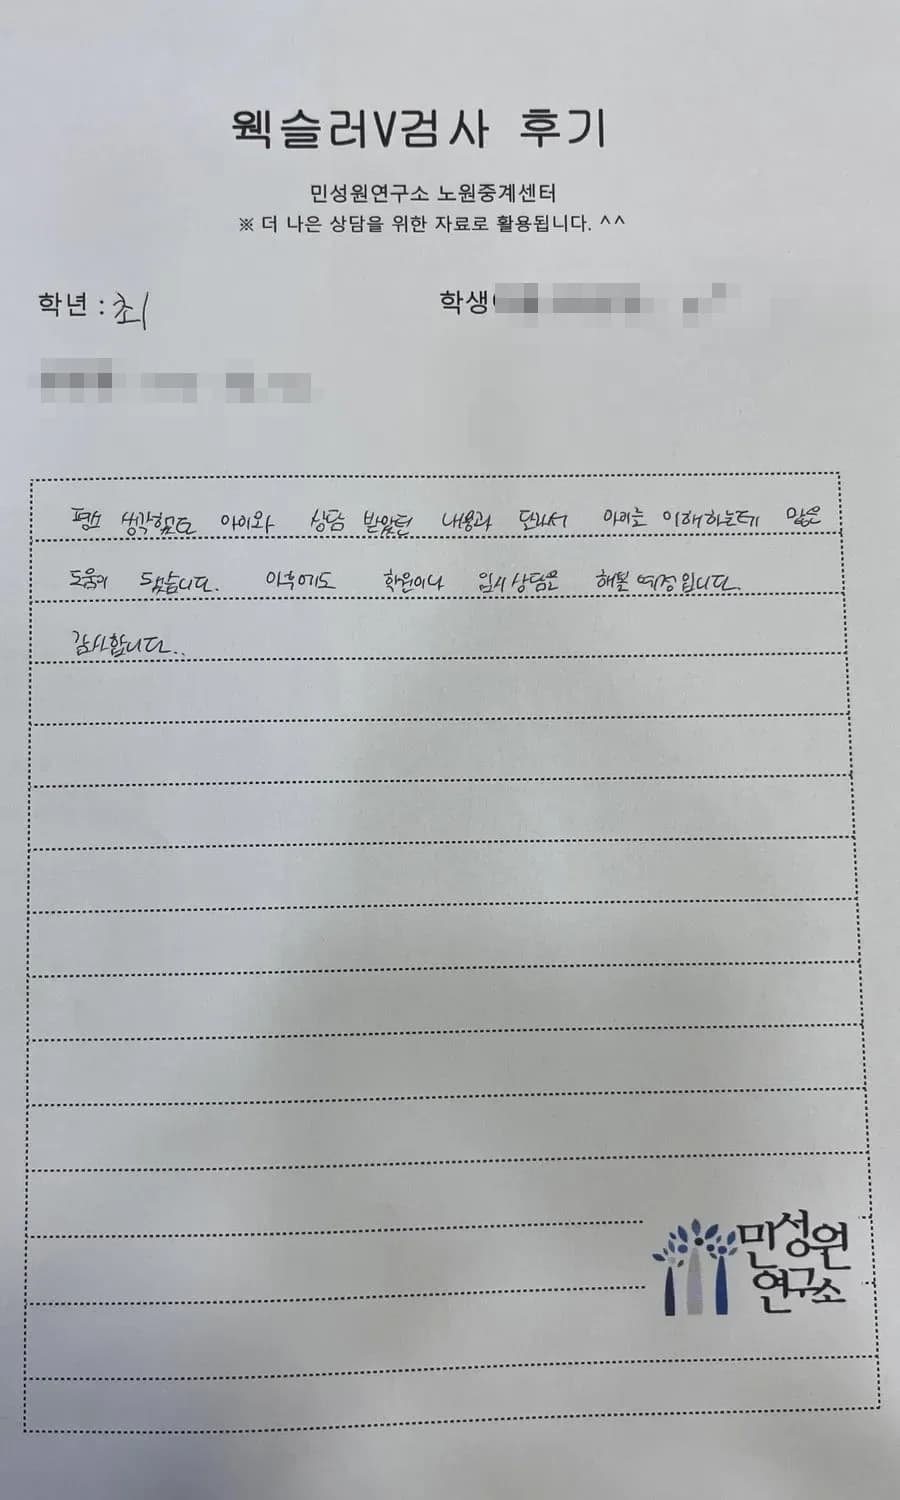 웩슬러V검사 후기
민성원연구소 노원중계센터
※ 더 나은 상담을 위한 자료로 활용됩니다. ^^
학년 : 초1
학생
평소 생각했던 아이와 상담 받았던 내용과 달라서 아이를 이해하는데 많은
도움이 됐습니다. 이후에도 학원이나 입시상담은 해볼 예정입니다.
감사합니다..
민성원
연구소